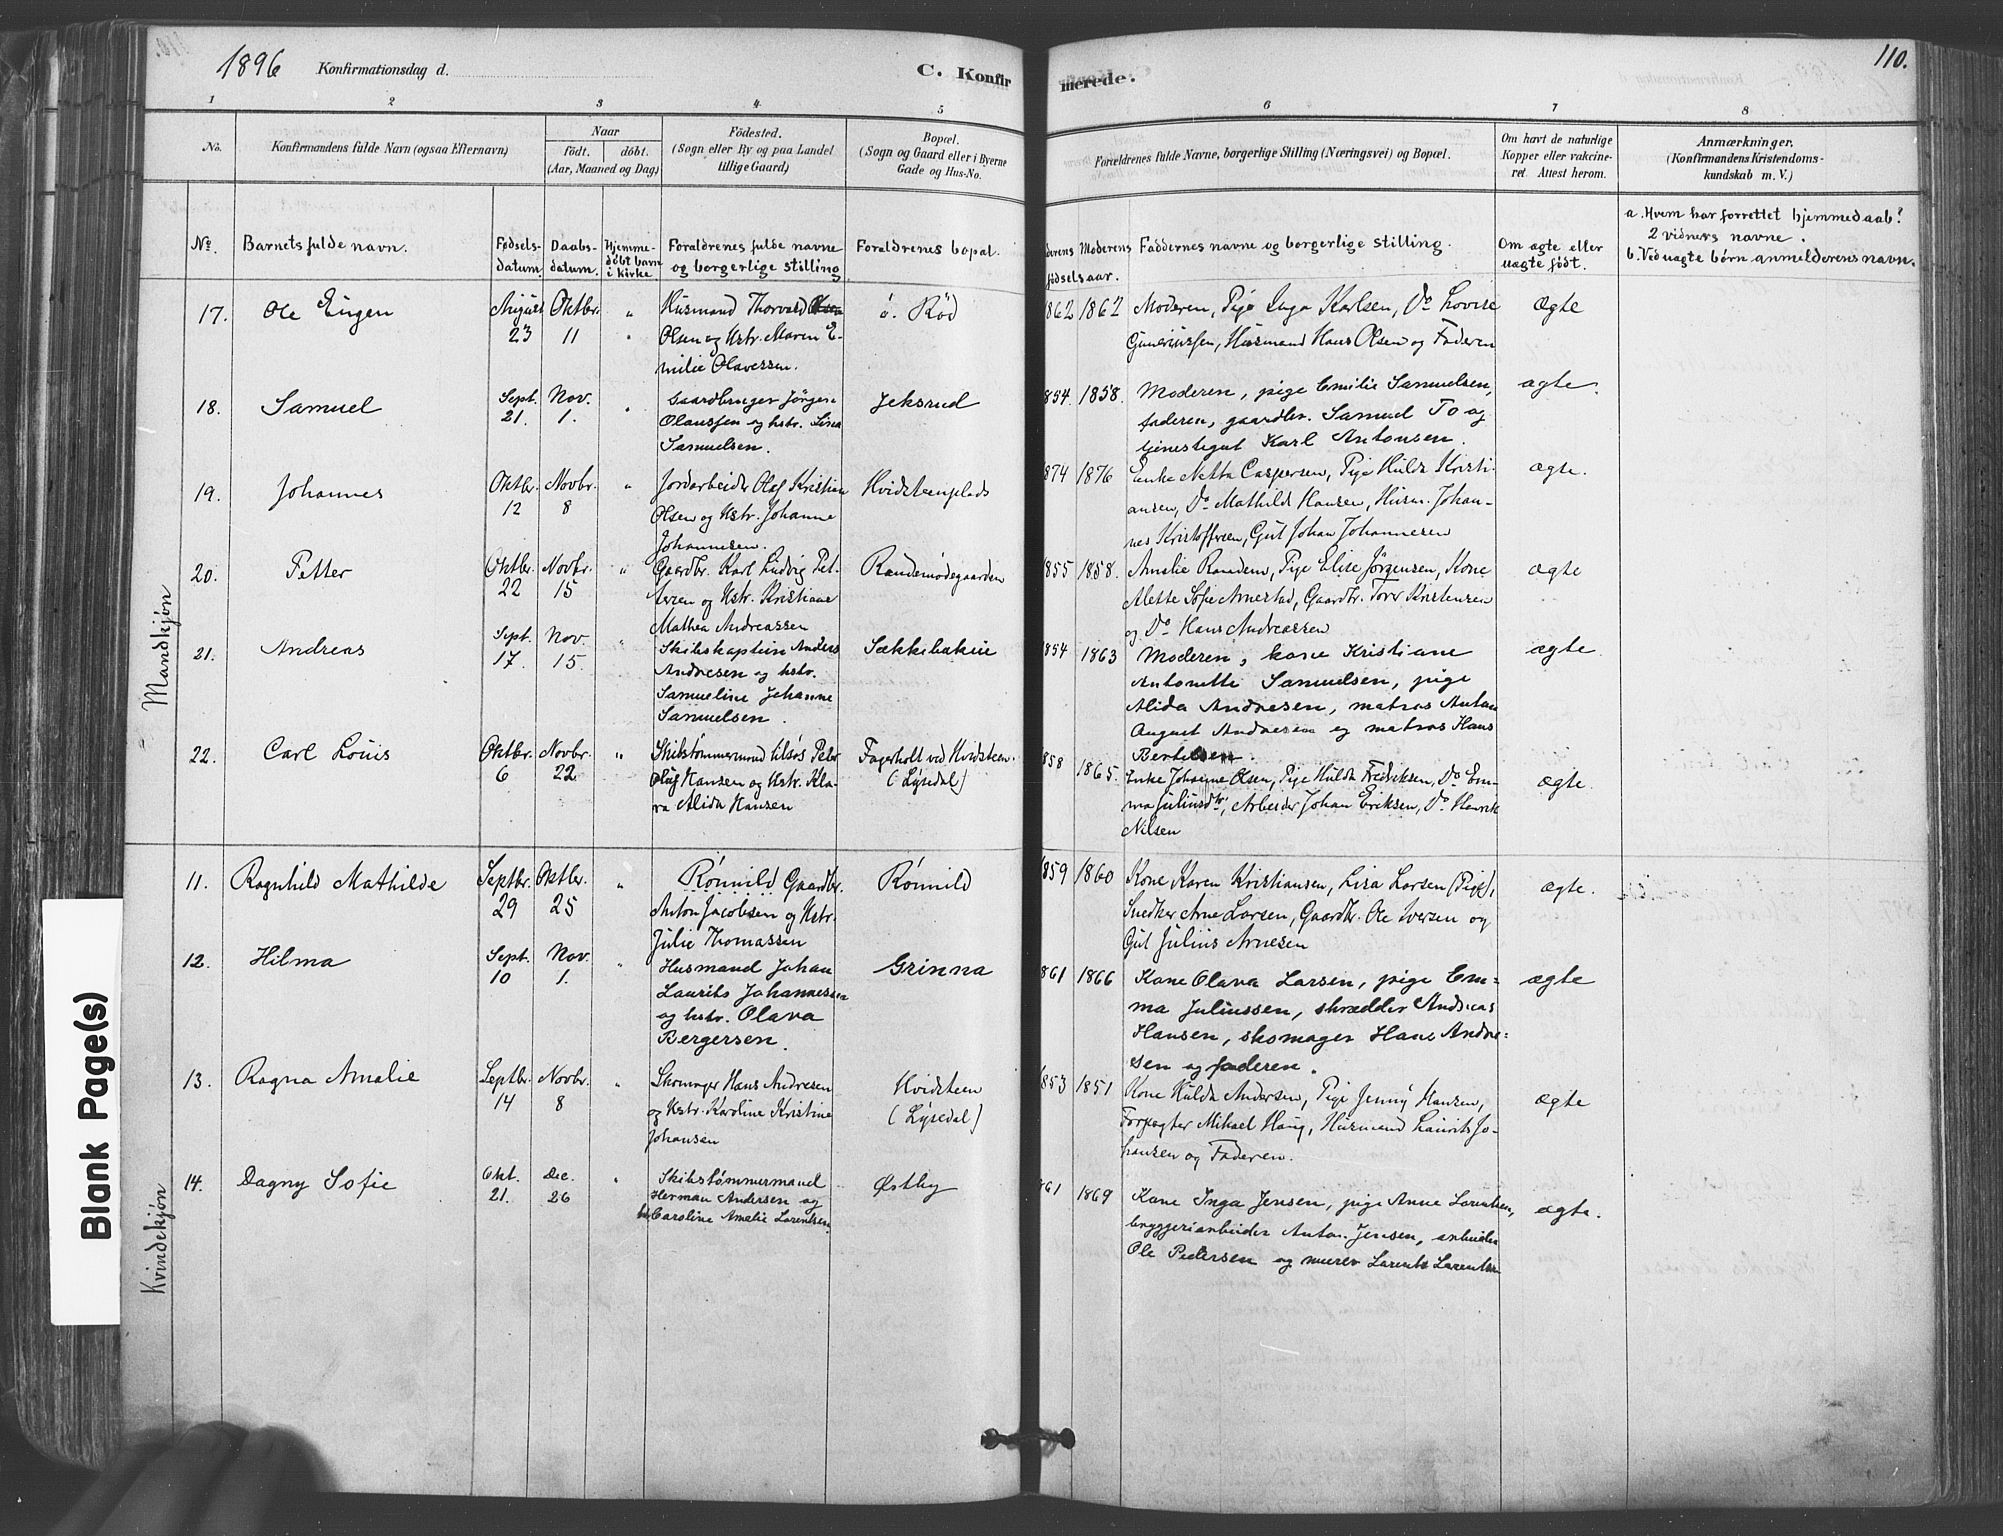 1896 Konfirmationsdag d. C. Konfirmerede. 110.
1 2 3 4 5 6 7 8
No.
Konfirmandens fulde Navn (ogsaa Efternavn)
Naar
födt. döbt.
(Aar, Maaned og Dag)
Födested.
(Sogn eller By og paa Landet
tillige Gaard)
Bopæl.
(Sogn og Gaard eller i Byerne
Gade og Hus-No.
Forældrenes fulde Navne, borgerlige Stilling (Næringsvei) og Bopæl.
Om havt de naturlige
Kopper eller vakcine-
ret. Attest herom.
Anmærkninger.
(Konfirmandens Kristendoms-
kundskab m. V.)
No.
Barnets fulde navn.
Fødsels-
datum
Daabs-
datum.
Hjemme-
døbt barn
i kirke
Forældrenes fulde navne
og borgerlige stilling.
Forældrenes bopæl.
derens Moderens
fødselsaar.
Faddernes navne og borgerlige stilling.
Om ægte eller
uægte født.
a. Hvem har forrettet hjemmedaab?
2 vidners navne.
b. Ved uægte børn anmelderens navn.
Mandkjøn
17. Ole Eugen
August
23
Oktbr.
11
"
Husmand Thorvald
Olsen og Hstr. Maren E-
milie Olavessen.
ö. Röd
862 1862
Moderen, Pige Inga Karlsen, Do Lovise
Guneriussen, Husmand Hans Olsen og Faderen
Ægte
18. Samuel
Sept.
21.
Nov.
1.
"
Gaardbruger Jörgen
Olaussen og hstr. Lina
Samuelsen.
Jeksrud
854. 1858.
Moderen, pige Emilie Samuelsen,
faderen, gaardbr. Samuel To og
tjenestegut Karl Antonsen.
ægte.
19. Johannes
Oktbr.
12
Novbr.
8
"
Jordarbeider Olaf Kristian
Olsen og Hstr. Johanne
Johannesen.
Hvidstenplads
874 1876
Enke Netta Caspersen, Pige Hulda Kristi-
ansen, Do Mathilde Hansen, Husm. Johan-
nes Kristoffersen, Gut Johan Johannesen
Ægte.
20. Petter
Oktbr.
22
Novbr.
15
"
Gaardbr. Karl Ludvig Pet-
tersen og Hstr. Kristiane
Mathea Andreassen
Randemødegaarden
855 1858.
Amalie Randem, Pige Elise Jørgensen, Kone
Alette Sofie Arnestad, Gaardbr. Torer Kristensen
og Do Hans Andreassen
ægte
21. Andreas
Sept.
17.
Nov.
15.
"
Skibskaptein Anders
Andresen og hstr.
Samueline Johanne
Samuelsen.
Sækkebakke
854 1863
Moderen, kone Kristiane
Antonette Samuelsen, pige
Alida Andresen, matros Anton
August Andresen og matros Hans
Bertelsen.
ægte
22. Carl Louis
Oktbr.
6
Novbr.
22
"
Skibstømmermand tilsøs Peter
Oluf Hansen og Hstr. Kla-
ra Alida Hansen
Fagerholt ved Hvidsteen.
(Lysedal)
858 1865.
Enke Johanne Olsen, Pige Hulda Fredriksen, Do Em-
ma Juliusdtr., Arbeider Johan Eriksen, Do Henrik
Nilsen
ægte.
Kvindekjøn
11. Ragnhild Mathilde
Septbr.
29
Oktbr.
25
"
Römild Gaardbr.
Anton Jacobsen og Hstr.
Julie Thomassen
Römild
1859 1860
Kone Karen Kristiansen, Lisa Larsen (Pige),
Snedker Arne Larsen, Gaardbr. Ole Iversen og
Gut Julius Arnesen
ægte.
12. Hilma
Sept.
10
Nov.
1.
"
Husmand Johan
Laurits Johannesen
og hstr. Olava
Bergersen.
Grinna
861 1866
Kone Olava Larsen, pige Em-
ma Juliussen, skrædder Andreas
Hansen, skomager Hans Andre-
sen og faderen.
ægte
13. Ragna Amalie
Septbr.
14
Novbr.
8
"
Skomager Hans Andresen
og Hstr. Karoline Kristine
Johansen
Hvidsteen
(Lysedal)
853 1851
Kone Hulda Andersen, Pige Jenny Hansen,
Forpagter Mikael Haug, Husmand Laurits Jo-
hansen og Faderen.
ægte
14. Dagny Sofie
Okt.
21.
Dec.
26
"
Skibstømmermand
Herman Andersen og
Caroline Amelie Lorentsen
Østby
861 1869
Kone Inga Jensen, pige Anne Lorentsen,
bryggeriarbeider Anton Jensen, arbeider
Ole Pedersen og murer Lorents Lorentsen
ægte.
Blank Page(s)